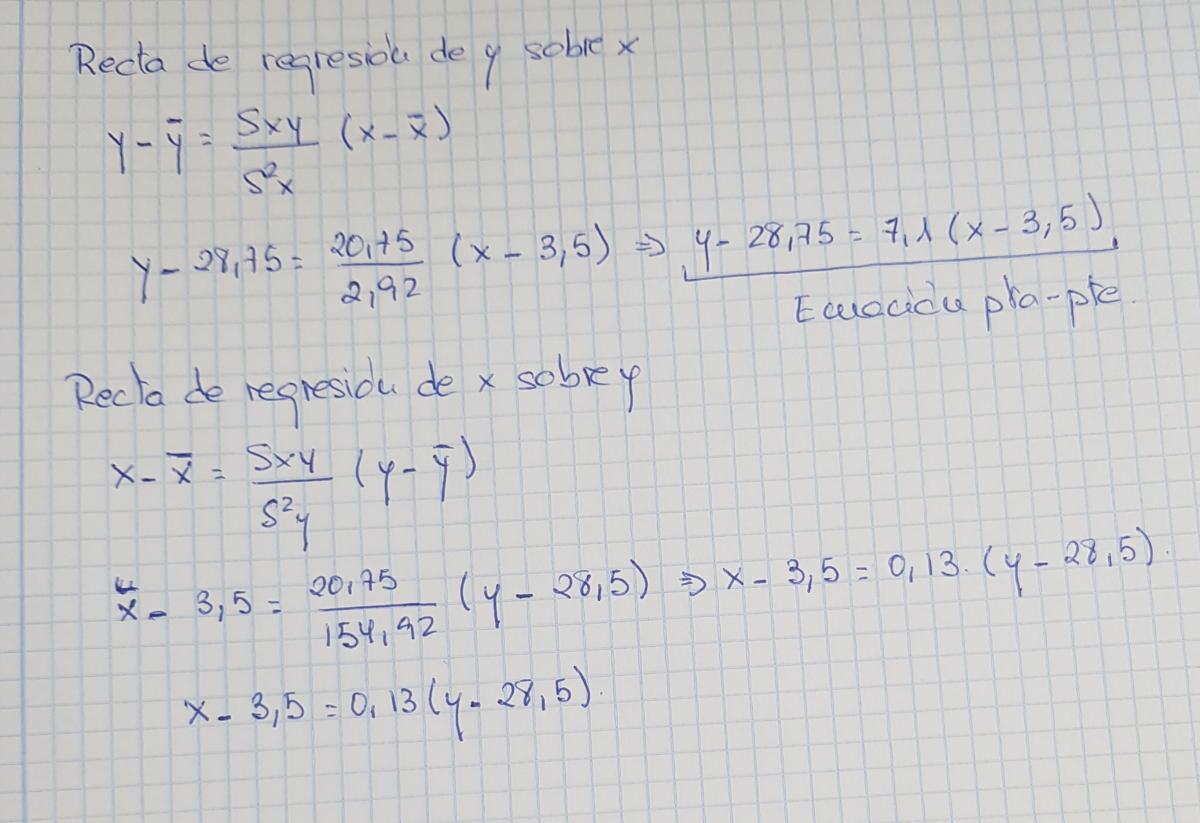 Recta de regresión de y sobre x
y - ȳ = Sxy / S²x (x - x̄)
y - 28,75 = 20,75 / 2,92 (x - 3,5) ⇒ y - 28,75 = 7,1 (x - 3,5)
Ecuación pto-pte.
Recta de regresión de x sobre y
x - x̄ = Sxy / S²y (y - ȳ)
x - 3,5 = 20,75 / 154,92 (y - 28,5) ⇒ x - 3,5 = 0,13 · (y - 28,5).
x - 3,5 = 0,13 (y - 28,5).